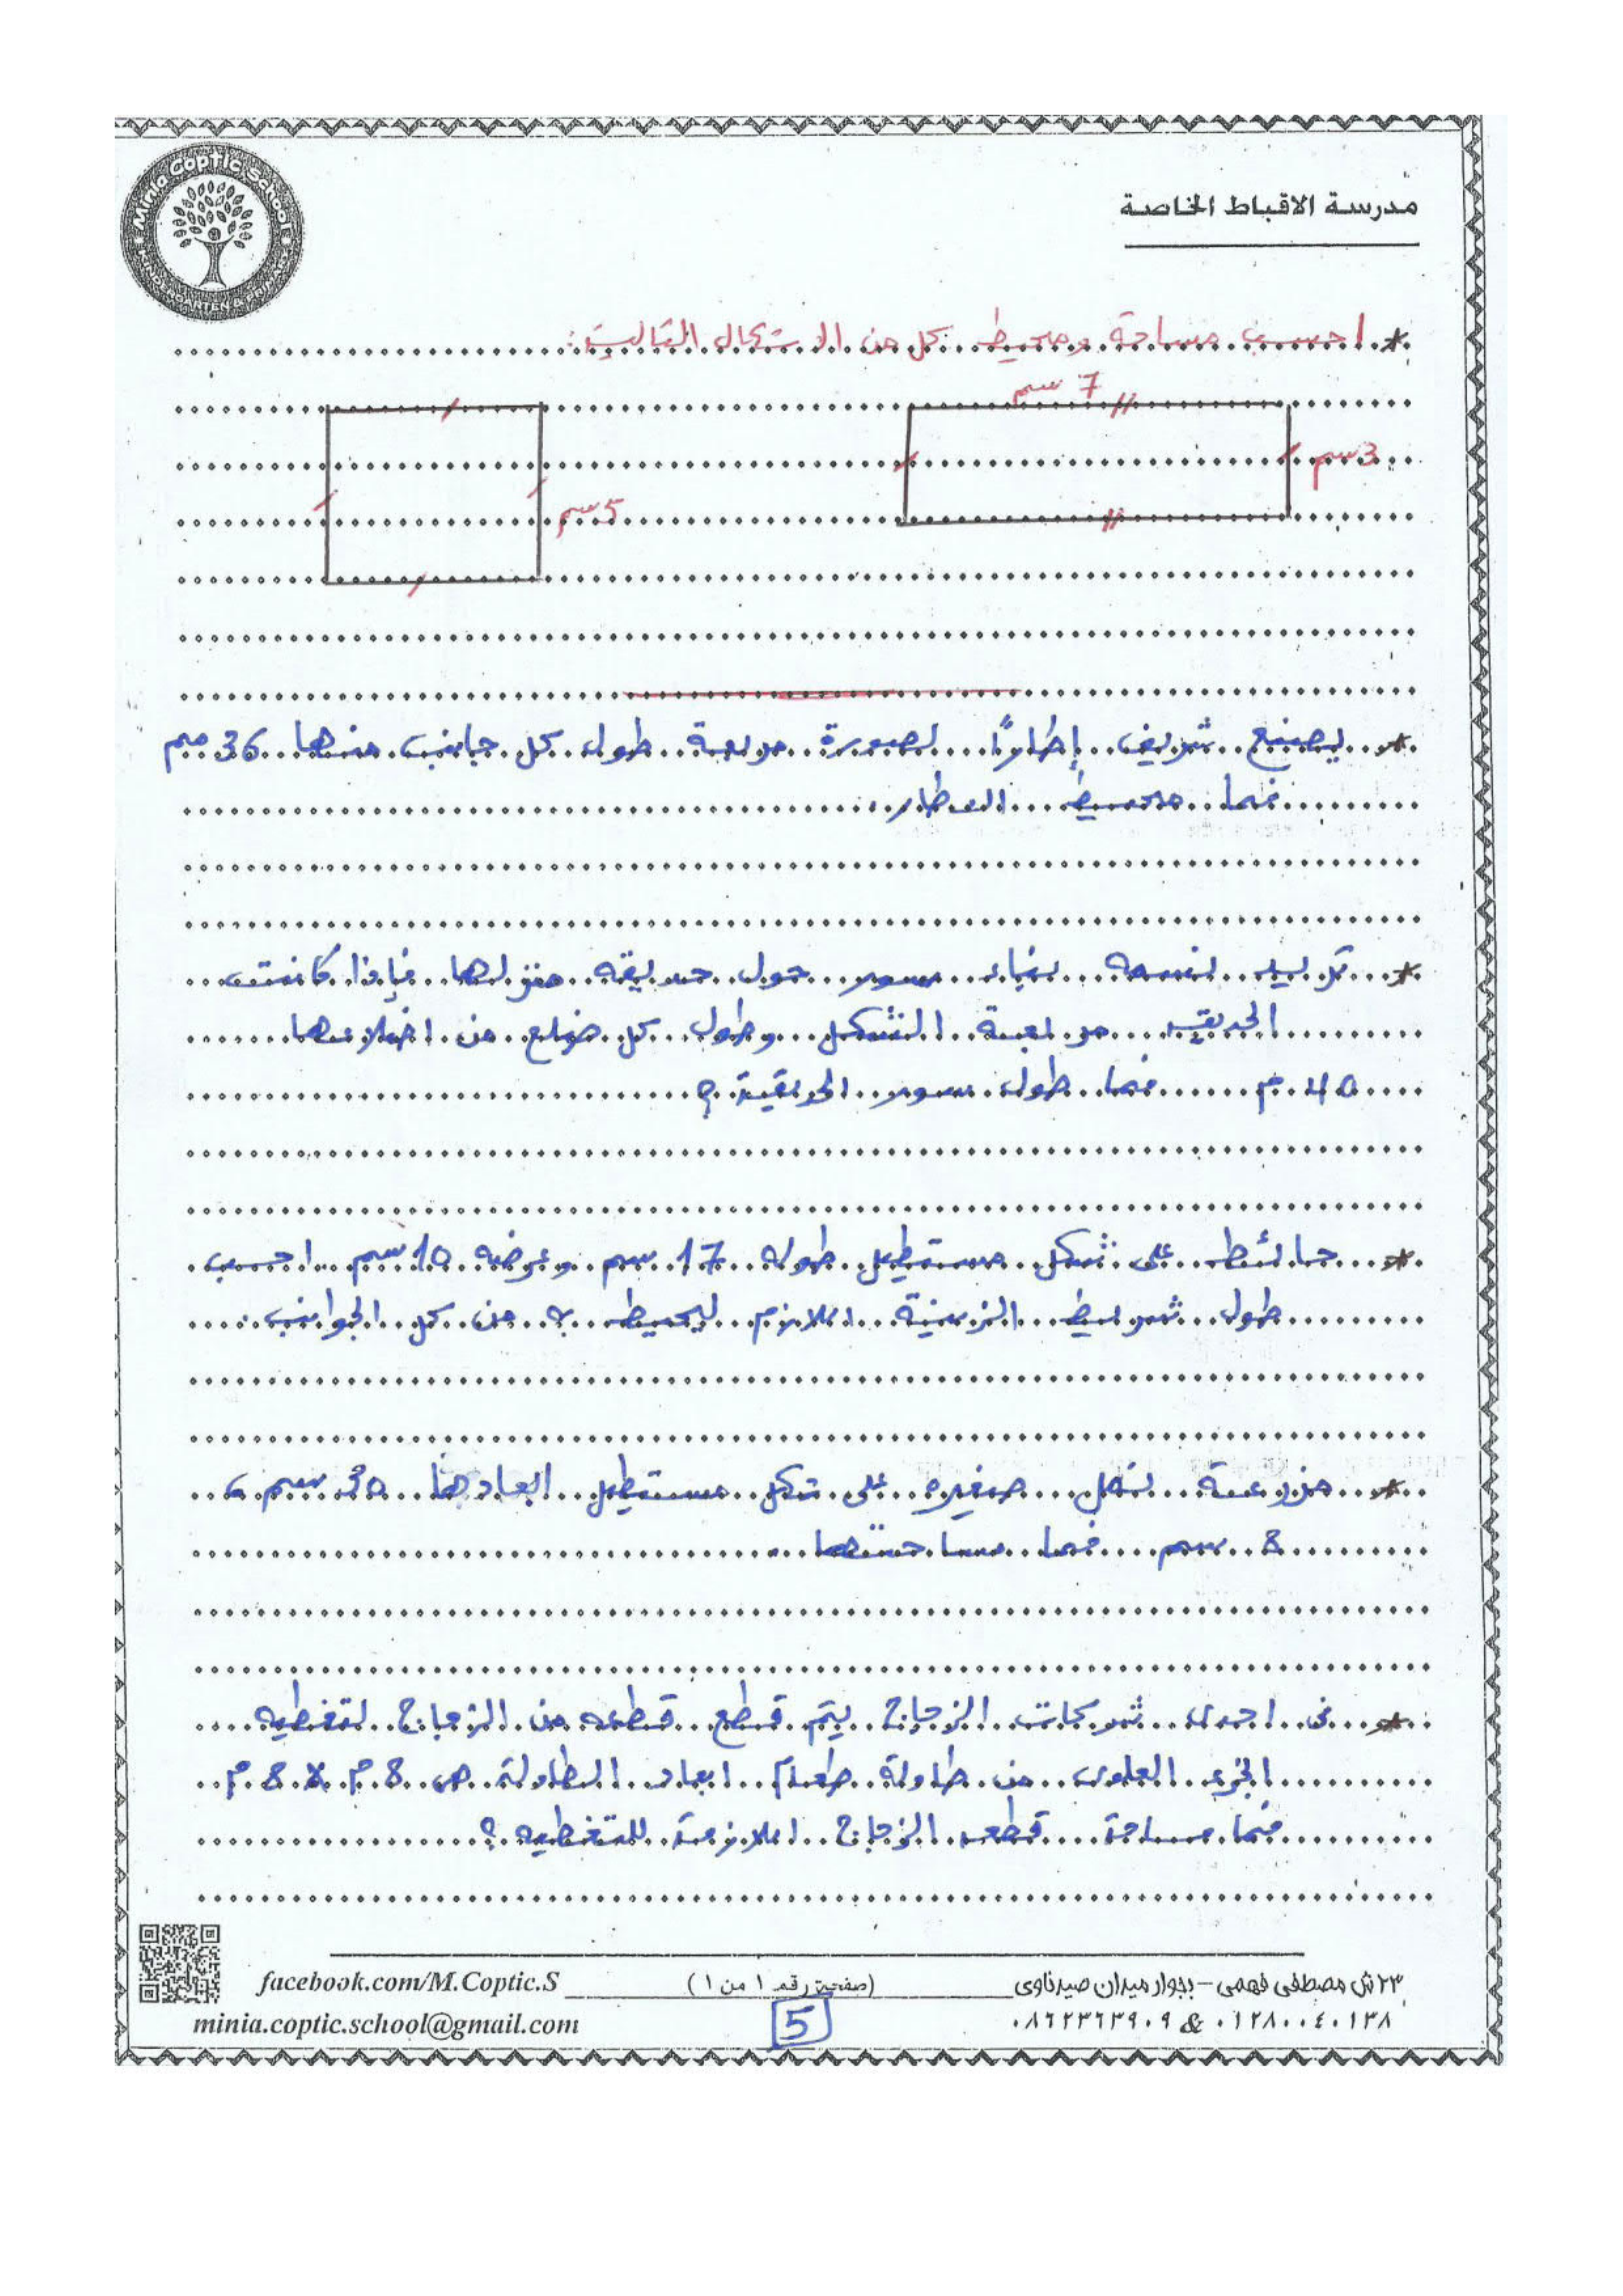 Minia Coptic School
KINDERGARTEN & PRIMARY
مدرسة الاقباط الخاصة
* احسب مساحة ومحيط كل من الاشكال التالية:
7 سم
3 سم
5 سم
* يصنع شريف إطارًا لصورة مربعة طول كل جانب منها 36 سم
فما محيط الاطار
* تريد نسمه بناء سور حول حديقه منزلها فإذا كانت
الحديقه مربعة الشكل وطول كل ضلع من اضلاعها
40 م فما طول سور الحديقة ؟
* حائط على شكل مستطيل طوله 17 سم وعرضه 10 سم احسب
طول شريط الزينة اللازم ليحيط به من كل الجوانب
* مزرعة نمل صغيره على شكل مستطيل ابعادها 30 سم ،
8 سم فما مساحتها
* فى احدى شركات الزجاج يتم قطع قطعه من الزجاج لتغطيه
الجزء العلوى من طاولة طعام ابعاد الطاولة هى 8 م × 8 م
فما مساحة قطعه الزجاج اللازمة للتغطيه ؟
facebook.com/M.Coptic.S
(صفحة رقم ١ من ١)
٢٣ ش مصطفى فهمى - بجوار ميدان صيدناوى
minia.coptic.school@gmail.com
5
٠٨٦٢٣٦٣٩٠٩ & ٠١٢٨٠٠٤٠١٣٨